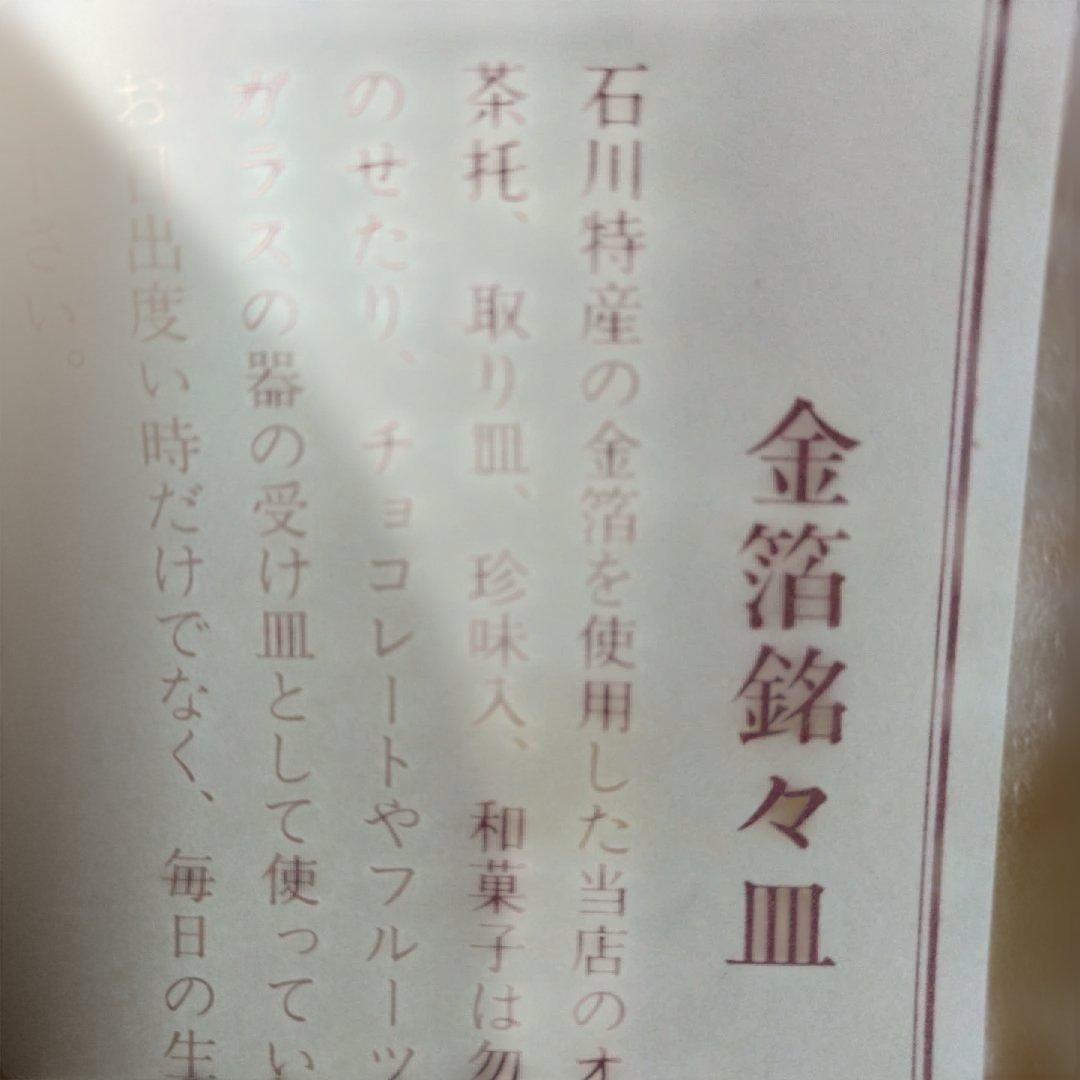 金箔銘々皿
石川特産の金箔を使用した当店のオ
茶托、取り皿、珍味入、和菓子は勿
のせたり、チョコレートやフルーツ
ガラスの器の受け皿として使ってい
お目出度い時だけでなく、毎日の生
下さい。